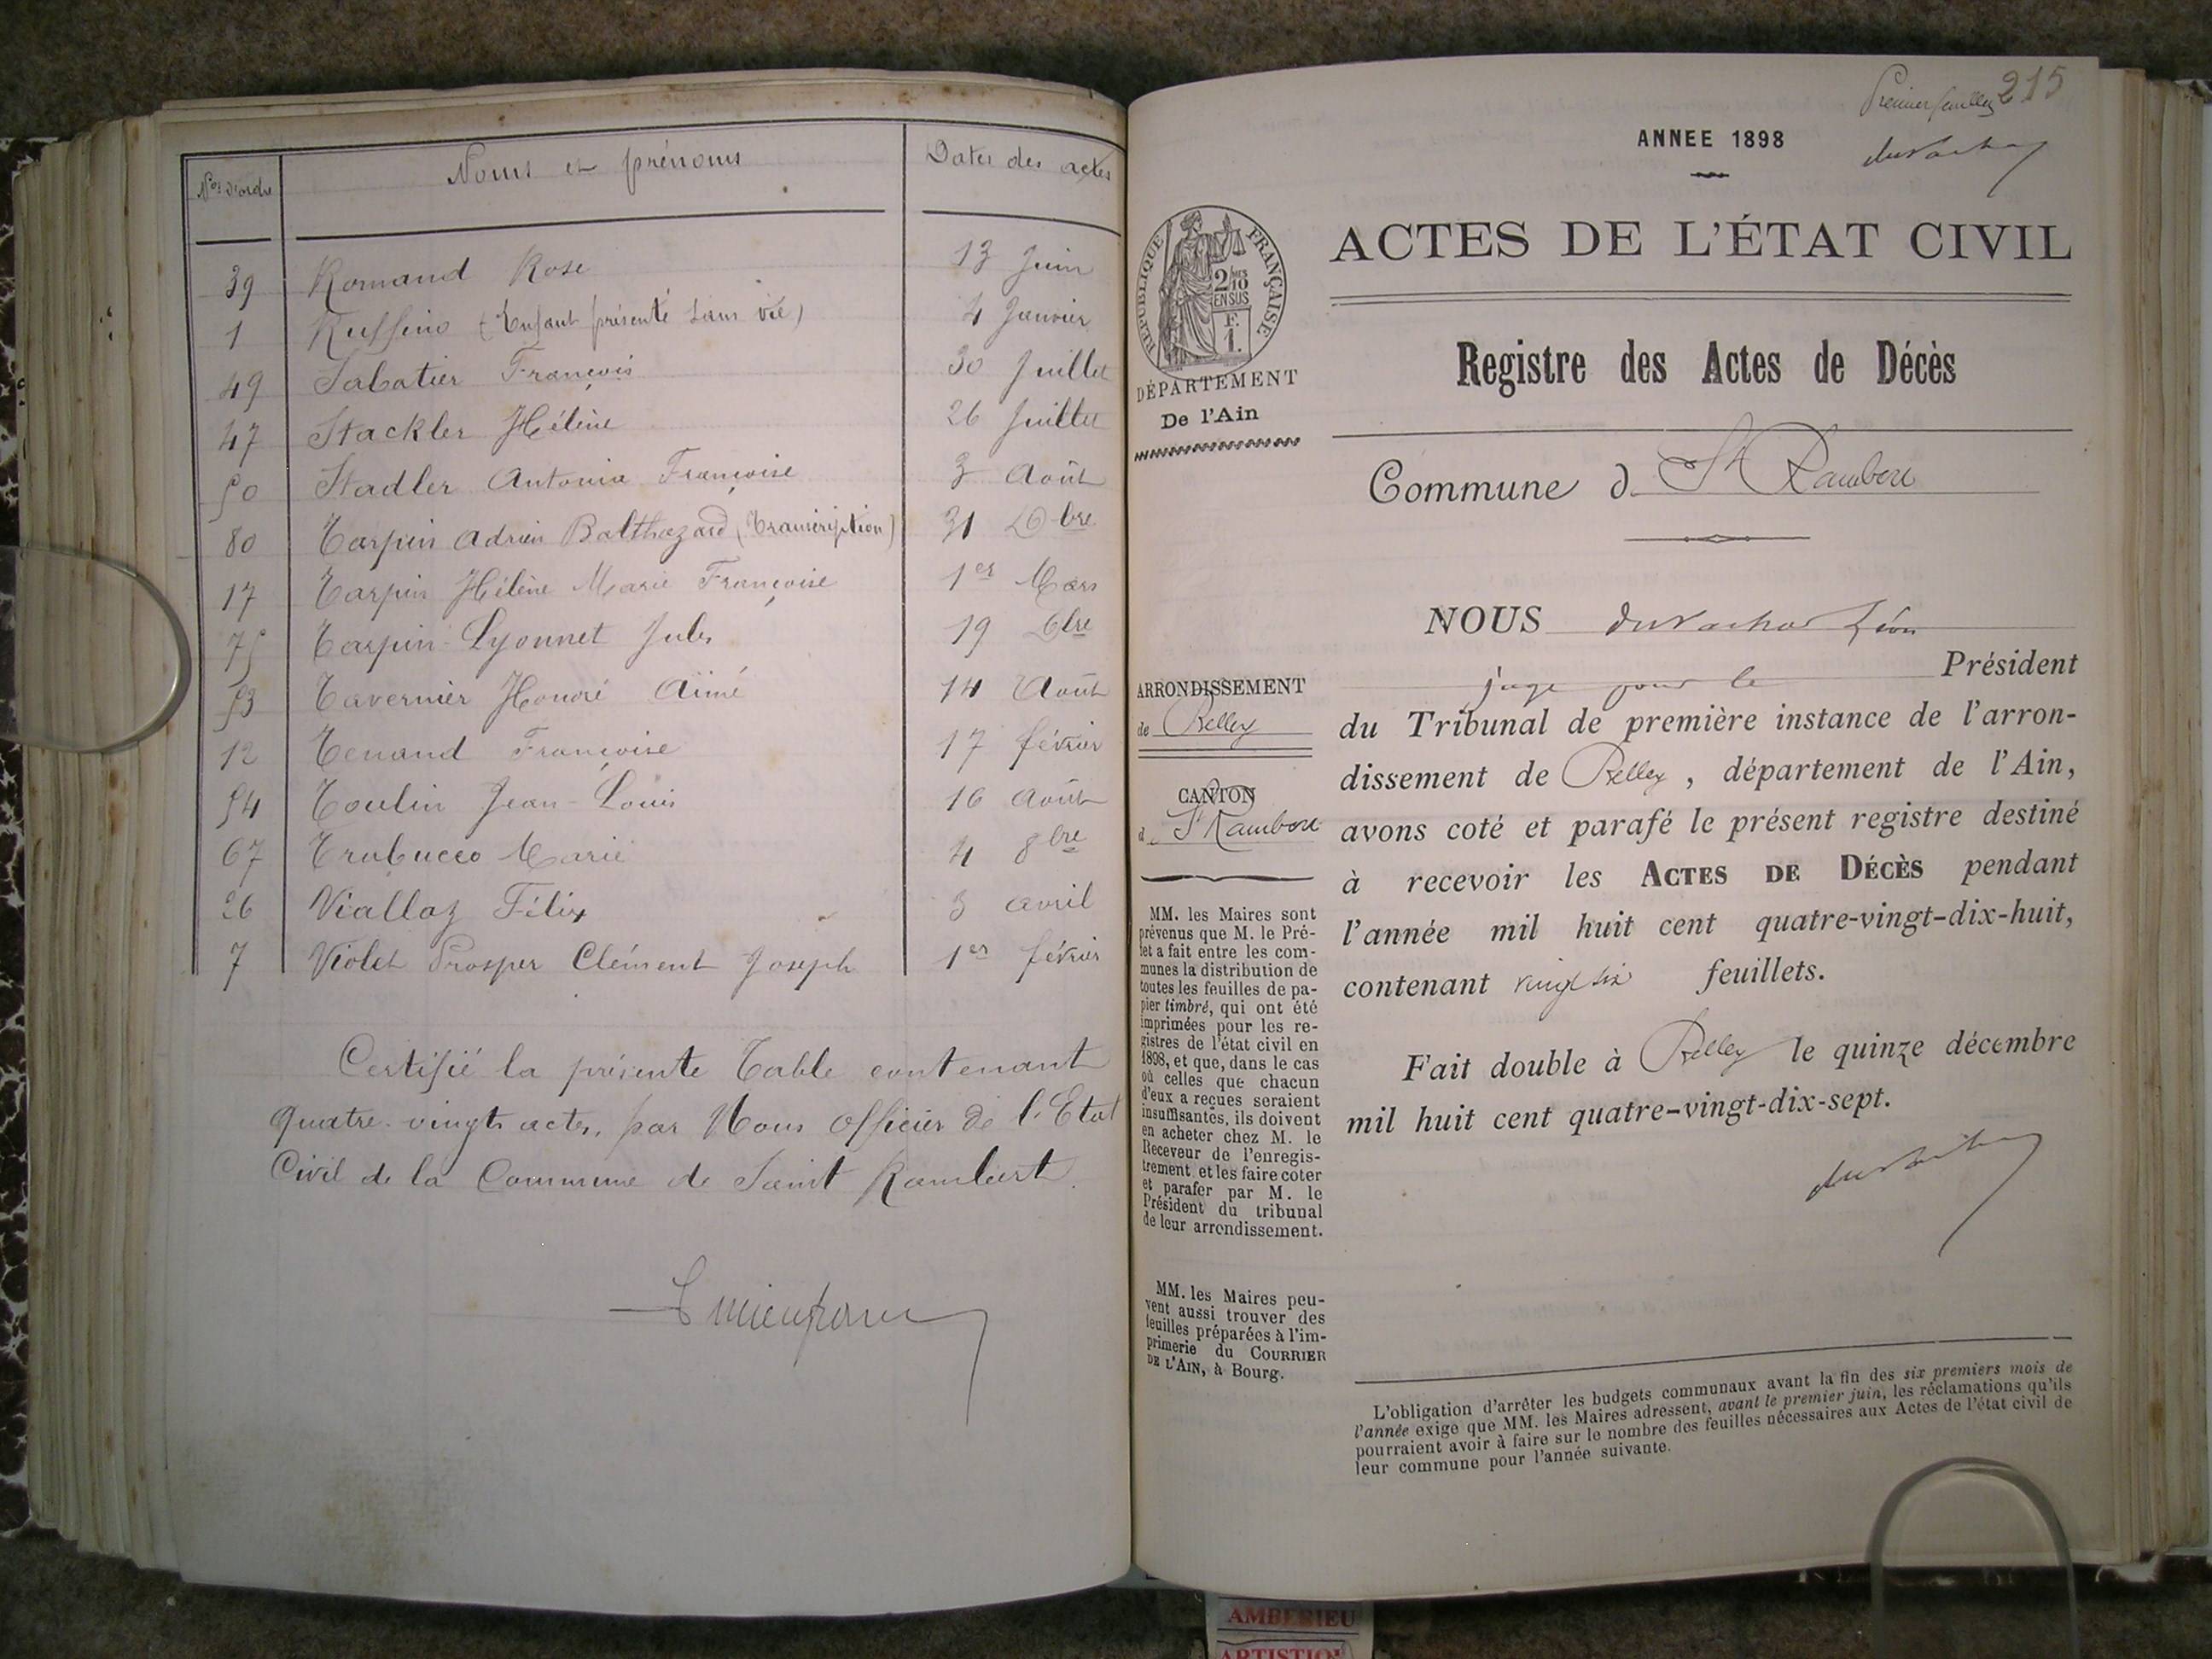 Nos d'ordre | Noms et prénoms | Dates des actes
39 | Romand Rose | 13 Juin
1 | Ruffino (Enfant présenté sans vie) | 4 Janvier
49 | Sabatier François | 30 Juillet
47 | Stackler Hélène | 26 Juillet
50 | Stadler Antonia Françoise | 3 Août
80 | Tarpin Adrien Balthazard (Transcription) | 31 Xbre
17 | Tarpin Hélène Marie Françoise | 1er Mars
75 | Tarpin-Lyonnet Jules | 19 Xbre
53 | Tavernier Honoré Aimé | 14 Août
12 | Tenand Françoise | 17 février
54 | Toulin Jean-Louis | 16 Août
67 | Trabucco Marie | 4 8bre
26 | Viallaz Félix | 3 avril
7 | Violet Prosper Clément Joseph | 1er février
Certifié la présente Table contenant
quatre-vingts actes, par Nous Officier de l'Etat
Civil de la Commune de Saint Rambert.
Premier feuillet 215
ANNEE 1898
ACTES DE L'ÉTAT CIVIL
RÉPUBLIQUE FRANÇAISE
2/10
EN SUS
F.
1.
DÉPARTEMENT
De l'Ain
Registre des Actes de Décès
Commune d St Rambert
NOUS Léon
juge pour le Président
du Tribunal de première instance de l'arron-
dissement de Belley, département de l'Ain,
avons coté et parafé le présent registre destiné
à recevoir les ACTES DE DÉCÈS pendant
l'année mil huit cent quatre-vingt-dix-huit,
contenant vingt six feuillets.
Fait double à Belley le quinze décembre
mil huit cent quatre-vingt-dix-sept.
ARRONDISSEMENT
de Belley
CANTON
d. St Rambert
MM. les Maires sont
prévenus que M. le Pré-
fet a fait entre les com-
munes la distribution de
toutes les feuilles de pa-
pier timbré, qui ont été
imprimées pour les re-
gistres de l'état civil en
1898, et que, dans le cas
où celles que chacun
d'eux a reçues seraient
insuffisantes, ils doivent
en acheter chez M. le
Receveur de l'enregis-
trement et les faire coter
et parafer par M. le
Président du tribunal
de leur arrondissement.
MM. les Maires peu-
vent aussi trouver des
feuilles préparées à l'im-
primerie du COURRIER
DE L'AIN, à Bourg.
L'obligation d'arrêter les budgets communaux avant la fin des six premiers mois de
l'année exige que MM. les Maires adressent, avant le premier juin, les réclamations qu'ils
pourraient avoir à faire sur le nombre des feuilles nécessaires aux Actes de l'état civil de
leur commune pour l'année suivante.
AMBERIEU